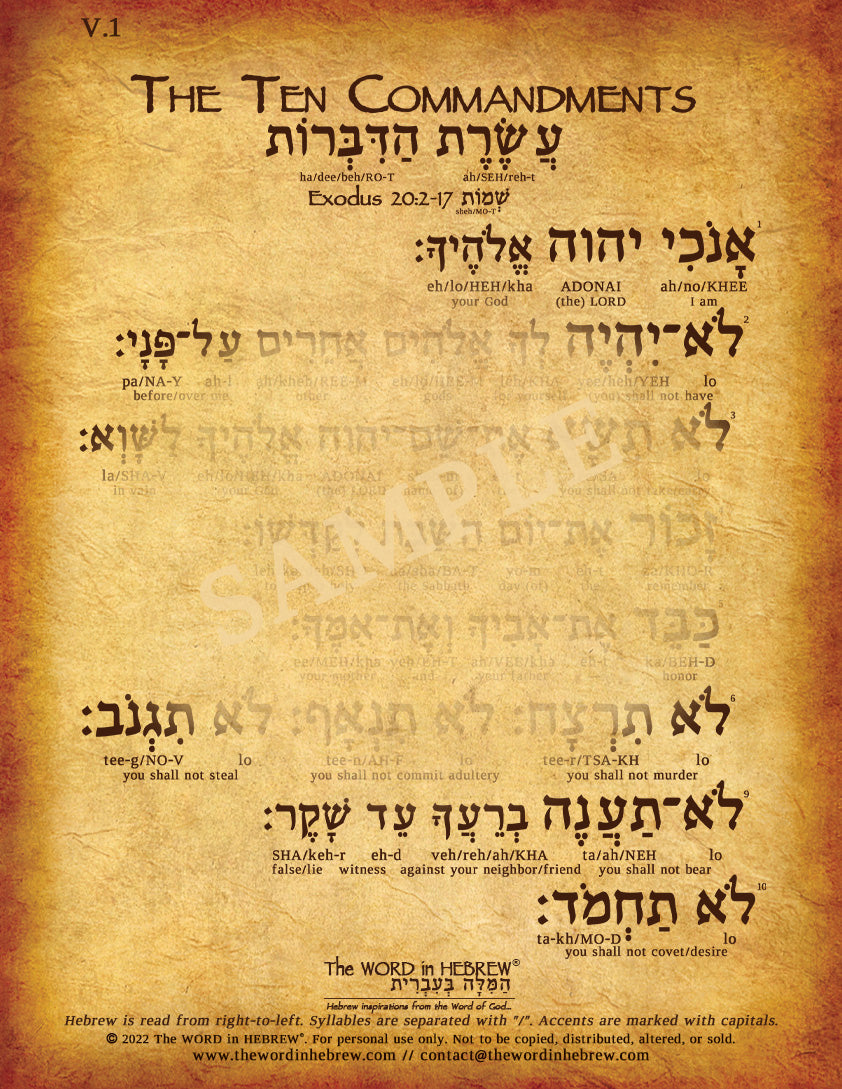 V.1
THE TEN COMMANDMENTS
עֲשֶׂרֶת הַדִּבְּרוֹת
ha/dee/beh/RO-T ah/SEH/reh-t
Exodus 20:2-17 שְׁמוֹת
sheh/MO-T
1 אָנֹכִי יהוה אֱלֹהֶיךָ׃
eh/lo/HEH/kha ADONAI ah/no/KHEE
your God (the) LORD I am
2 לֹא־יִהְיֶה לְךָ אֱלֹהִים אֲחֵרִים עַל־פָּנָי׃
pa/NA-Y ah-l ah/kheh/REE-M eh/lo/HEE-M leh/KHA yee/heh/YEH lo
before/over me other gods (you) shall not have
3 לֹא תִשָּׂא אֶת־שֵׁם־יהוה אֱלֹהֶיךָ לַשָּׁוְא׃
la/SHA-V eh/lo/HEH/kha ADONAI lo
in vain your God (the) LORD name (of) you shall not take/carry
זָכוֹר אֶת־יוֹם הַשַּׁבָּת לְקַדְּשׁוֹ׃
yo-m eh-t za/KHO-R
the sabbath day (of) the remember
כַּבֵּד אֶת־אָבִיךָ וְאֶת־אִמֶּךָ׃
ee/MEH/kha veh/EH-T ah/VEE/kha eh-t ka/BEH-D
your mother and your father honor
SAMPLE
6 לֹא תִרְצָח׃ לֹא תִנְאָף׃ לֹא תִגְנֹב׃
tee-g/NO-V lo tee-n/AH-F lo tee-r/TSA-KH lo
you shall not steal you shall not commit adultery you shall not murder
9 לֹא־תַעֲנֶה בְרֵעֲךָ עֵד שָׁקֶר׃
SHA/keh-r eh-d veh/reh/ah/KHA ta/ah/NEH lo
false/lie witness against your neighbor/friend you shall not bear
10 לֹא תַחְמֹד׃
ta-kh/MO-D lo
you shall not covet/desire
The WORD in HEBREW®
הַמִּלָּה בְּעִבְרִית
Hebrew inspirations from the Word of God...
Hebrew is read from right-to-left. Syllables are separated with "/". Accents are marked with capitals.
© 2022 The WORD in HEBREW®. For personal use only. Not to be copied, distributed, altered, or sold.
www.thewordinhebrew.com // contact@thewordinhebrew.com